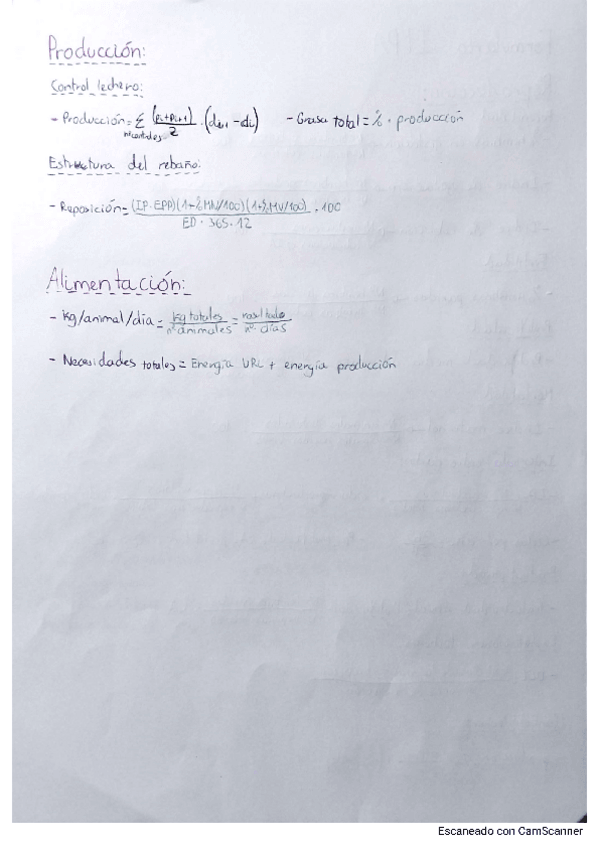 Producción:
Control lechero:
- Producción = Σ (Pi+Pi+1)/2 · (di+1 - di)   - Grasa total = % · producción
nº controles
Estructura del rebaño:
- Reposición = (IP · EPP)(1+%MN/100)(1+%MV/100) / ED · 365 · 12 · 100
Alimentación:
- kg/animal/día = kg totales / nº animales = resultado / nº días
- Necesidades totales = Energía URL + energía producción
Escaneado con CamScanner